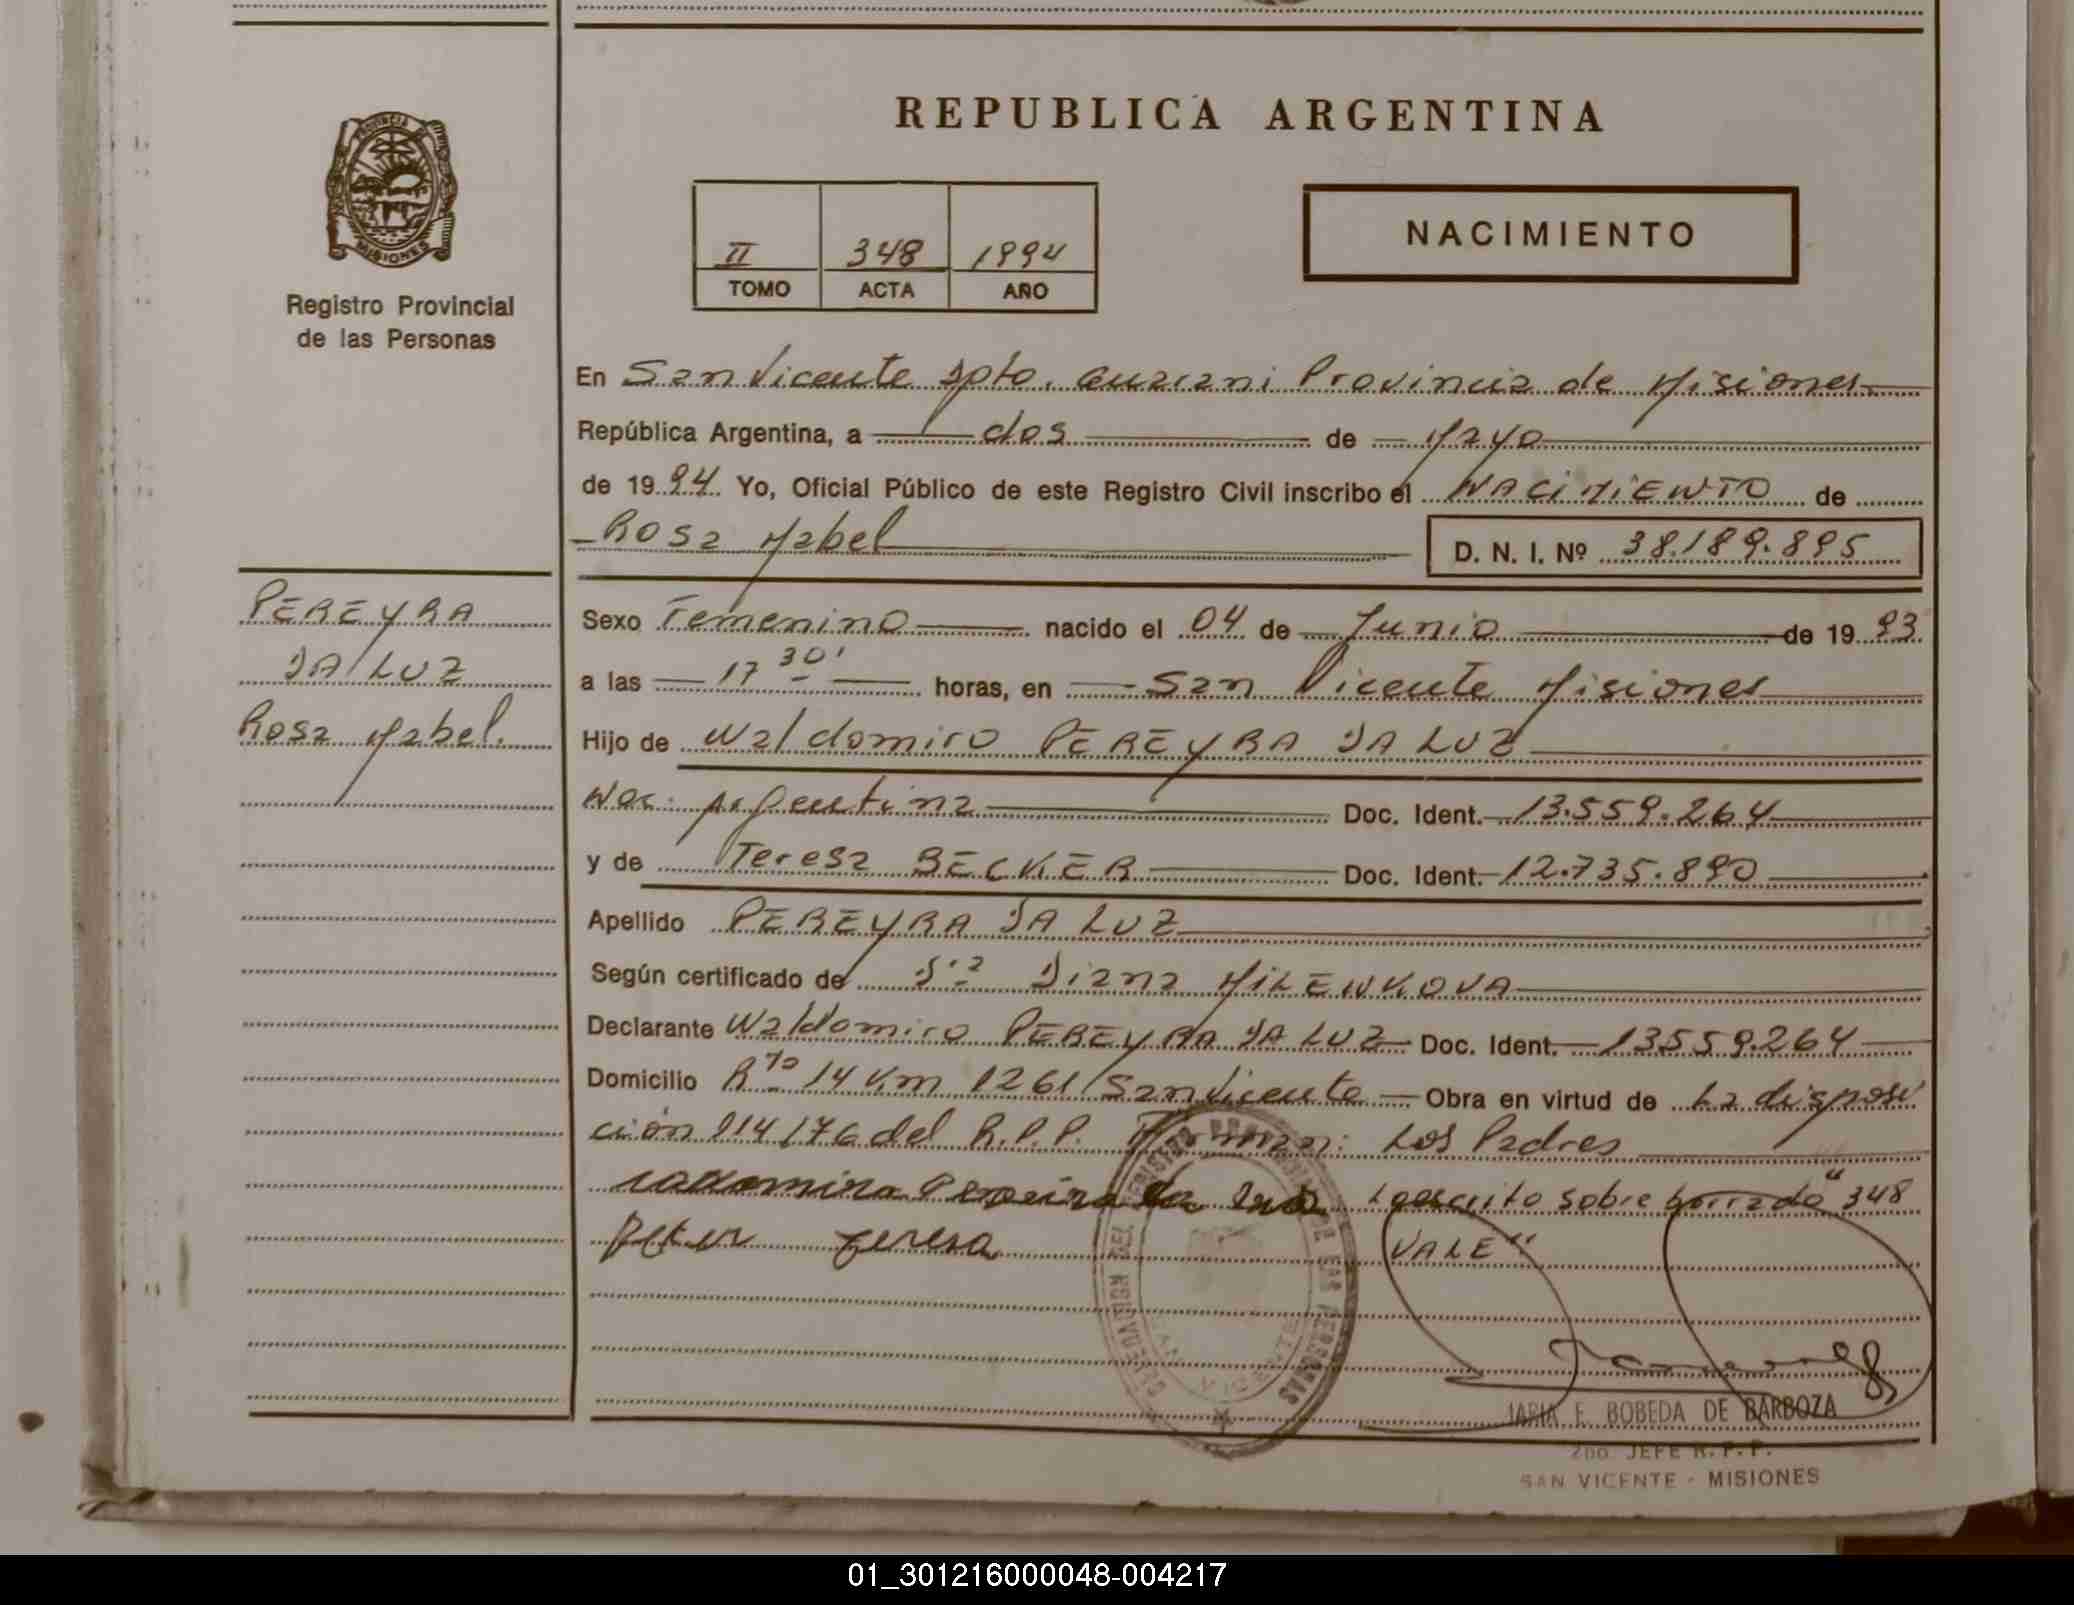 REPUBLICA ARGENTINA
PROVINCIA DE
MISIONES
Registro Provincial
de las Personas
II 348 1994
TOMO ACTA AÑO
NACIMIENTO
En San Vicente Dpto. Guarani Provincia de Misiones
República Argentina, a dos de Mayo
de 1994 Yo, Oficial Público de este Registro Civil inscribo el NACIMIENTO de
Rosa Mabel D. N. I. Nº 38.189.895
PEREYRA
DA LUZ
Rosa Mabel.
Sexo Femenino nacido el 04 de Junio de 1993
a las 17 30' horas, en San Vicente Misiones
Hijo de Waldomiro PEREYRA DA LUZ
Nac. Argentina Doc. Ident. 13.559.264
y de Teresa BECKER Doc. Ident. 12.735.890
Apellido PEREYRA DA LUZ
Según certificado de Dra Diana MILENKOVA
Declarante Waldomiro PEREYRA DA LUZ Doc. Ident. 13559.264
Domicilio Rta 14 Km 1261 San Vicente Obra en virtud de La disposi
ción 114/76 del R.P.P. Firman: Los Padres
Pereira da Luz Lo escrito sobre borrado "348
Teresa VALE"
MARIA E. BOBEDA DE BARBOZA
2DO. JEFE R. P. P.
SAN VICENTE - MISIONES
01_301216000048-004217